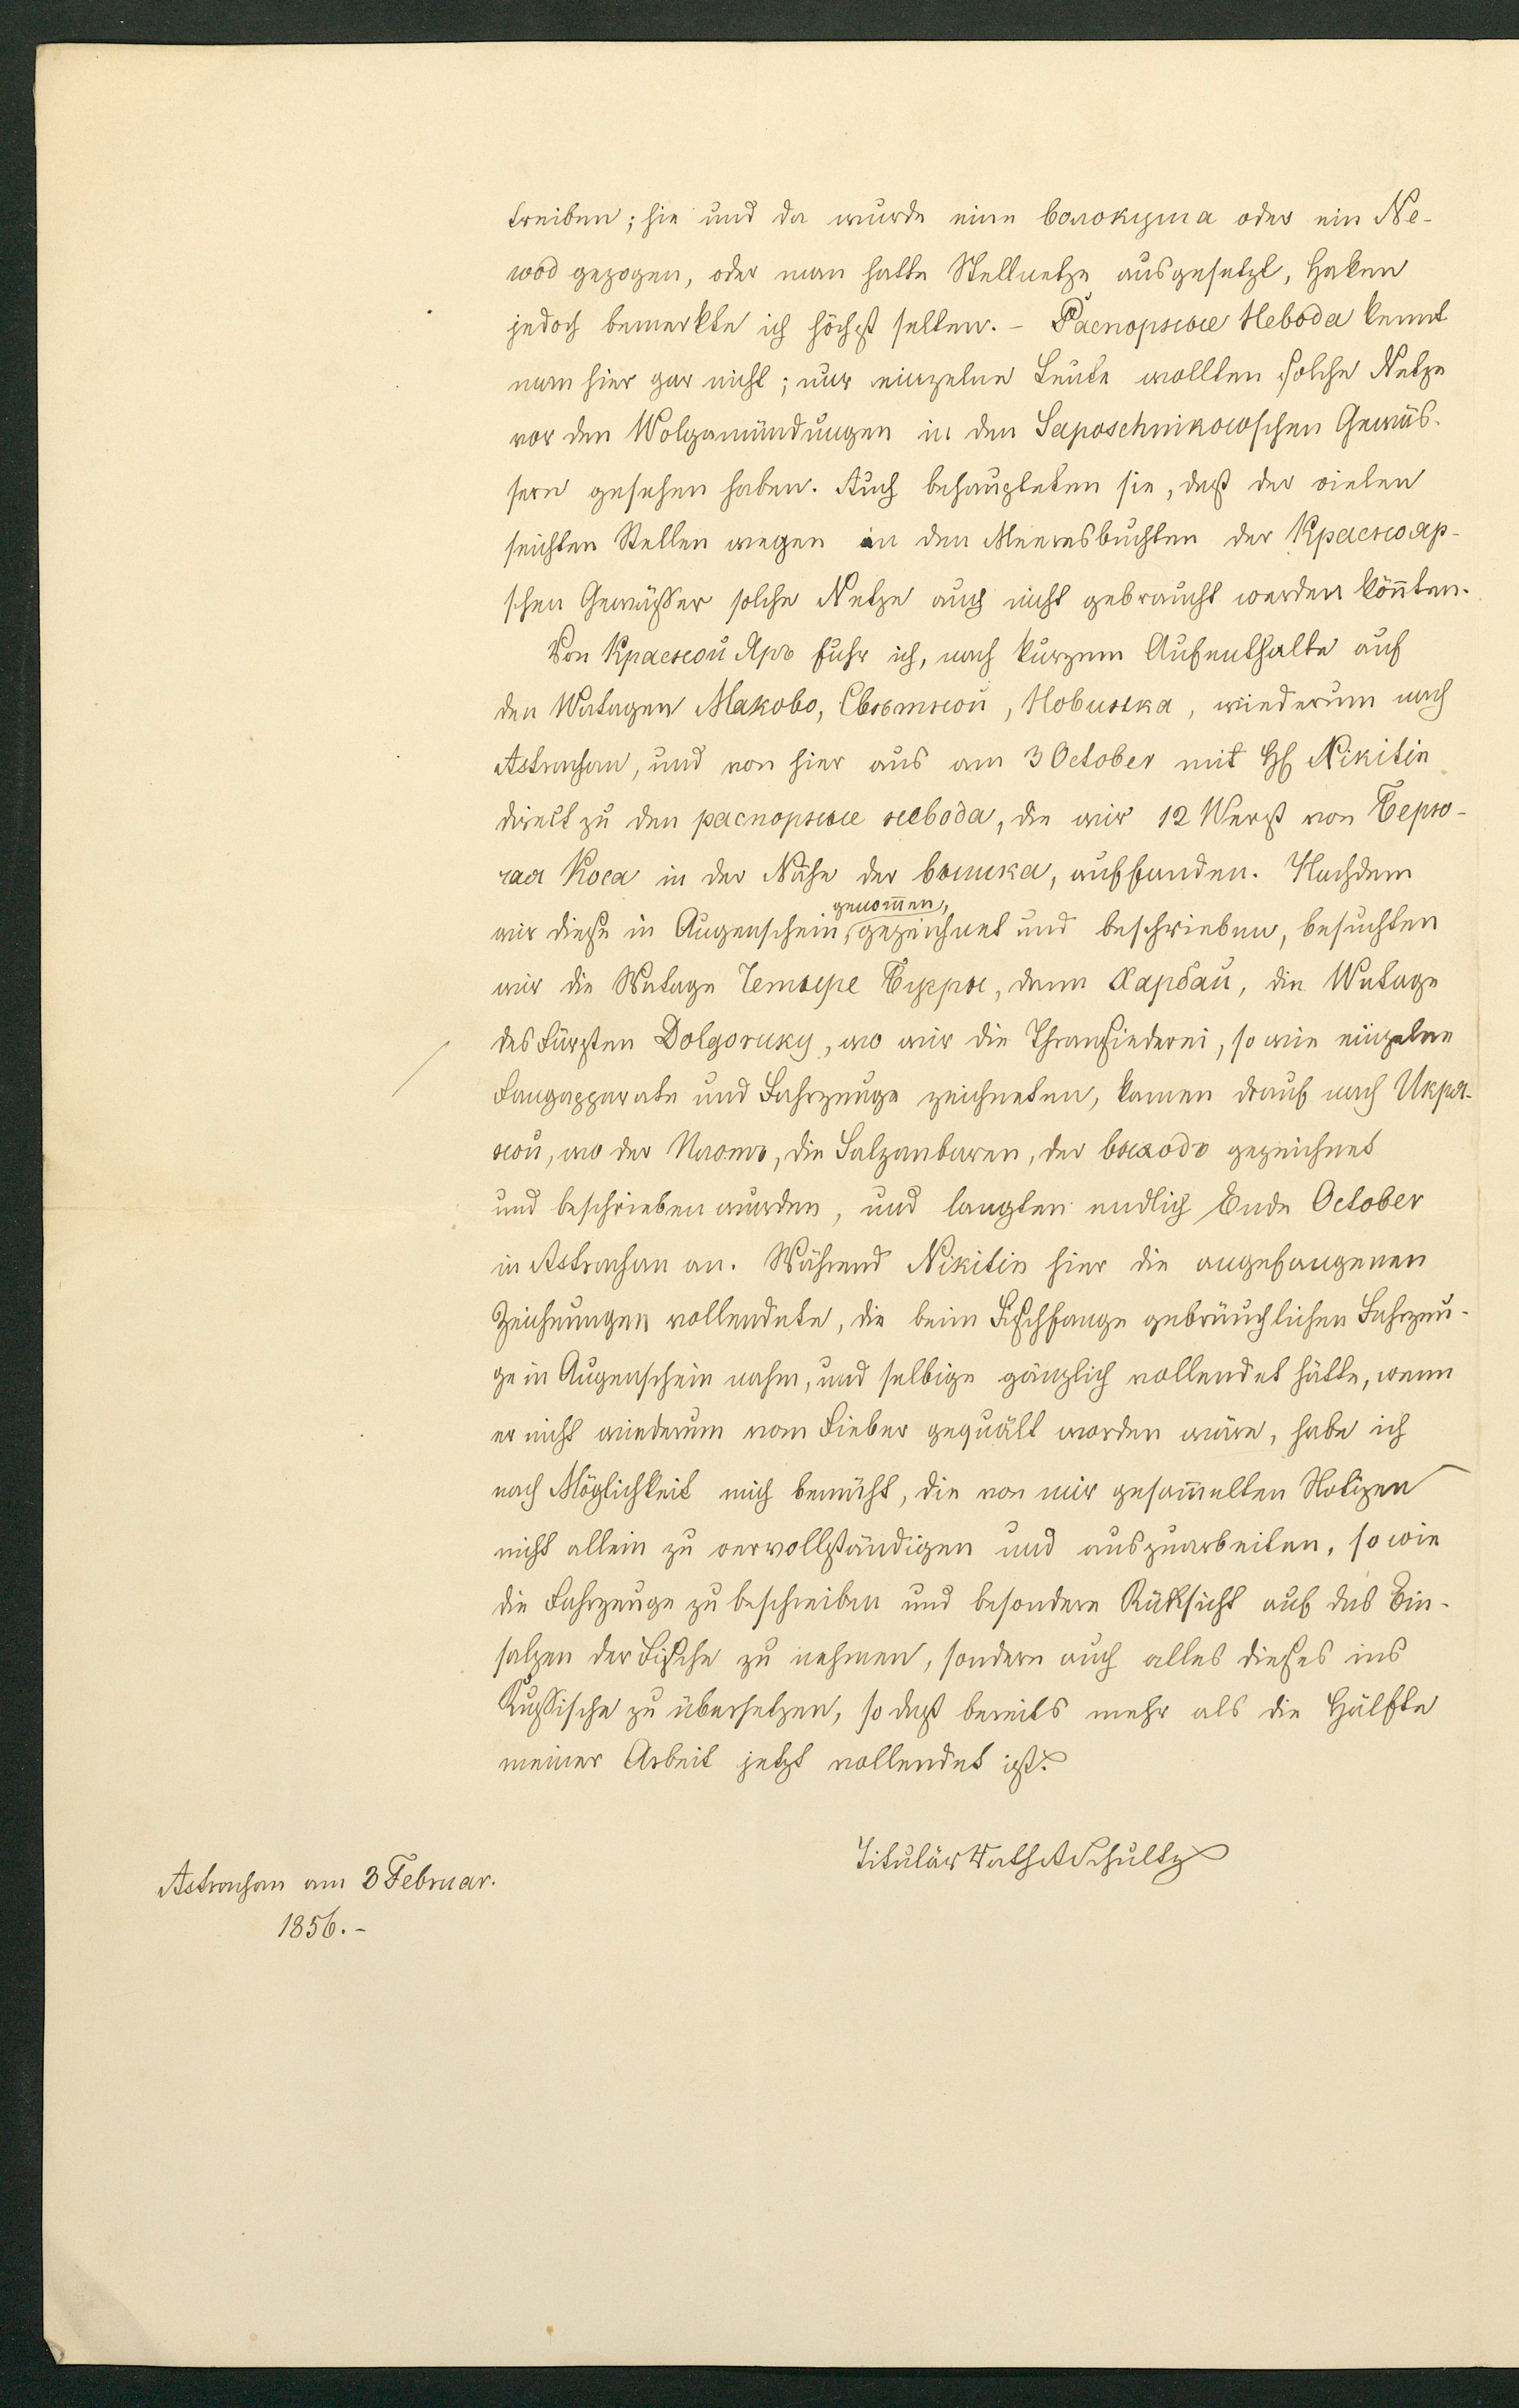 treiben; hie und da wurde eine волокуша oder ein Ne-
wod gezogen, oder man hatte Stellnetze ausgesetzt, Haken
jedoch bemerkte ich höchst selten. – Распорные Невода kennt
man hier gar nicht; nur einzelne Leute wollten solche Netze
vor den Wolgamündungen in den Saposchnikowschen Gewäs-
sern gesehen haben. Auch behaupteten sie, daß der vielen
seichten Stellen wegen in den Meeresbuchten der Красноар-
schen Gewässer solche Netze auch nicht gebraucht werden könnten.
Von Красной Яръ fuhr ich, nach kurzem Aufenthalte auf
den Watagen Маково, Свѣтной, Новинка, wiederum nach
Astrachan, und von hier aus am 3 October mit H Nikitin
direct zu den распорные невода, die wir 12 Werst von Бирю-
чая Коса in der Nähe der вышка, auffanden. Nachdem
genommen,
wir diese in Augenschein, gezeichnet und beschrieben, besuchten
wir die Watage Четыре Бугры, dann Харбай, die Watage
des Fürsten Dolgoruky, wo wir die Thransiederei, so wie einzelne
Fangapparate und Fahrzeuge zeichneten, kamen drauf nach Икря-
ной, wo der Плотъ, die Salzanbaren, der выходъ gezeichnet
und beschrieben wurden, und langten endlich Ende October
in Astrachan an. Während Nikitin hier die angefangenen
Zeichnungen vollendete, die beim Fischfange gebräuchlichen Fahrzeu-
ge in Augenschein nahm, und selbige gänzlich vollendet hätte, wenn
er nicht wiederum vom Fieber gequält worden wäre, habe ich
nach Möglichkeit mich bemüht, die von mir gesammelten Notizen
nicht allein zu vervollständigen und auszuarbeiten, so wie
die Fahrzeuge zu beschreiben und besondere Rücksicht auf das Ein-
salzen der Fische zu nehmen, sondern auch alles dieses ins
Russische zu übersetzen, so daß bereits mehr als die Hälfte
meiner Arbeit jetzt vollendet ist.
Titulär Rath A Schultz
Astrachan am 3 Februar.
1856. –